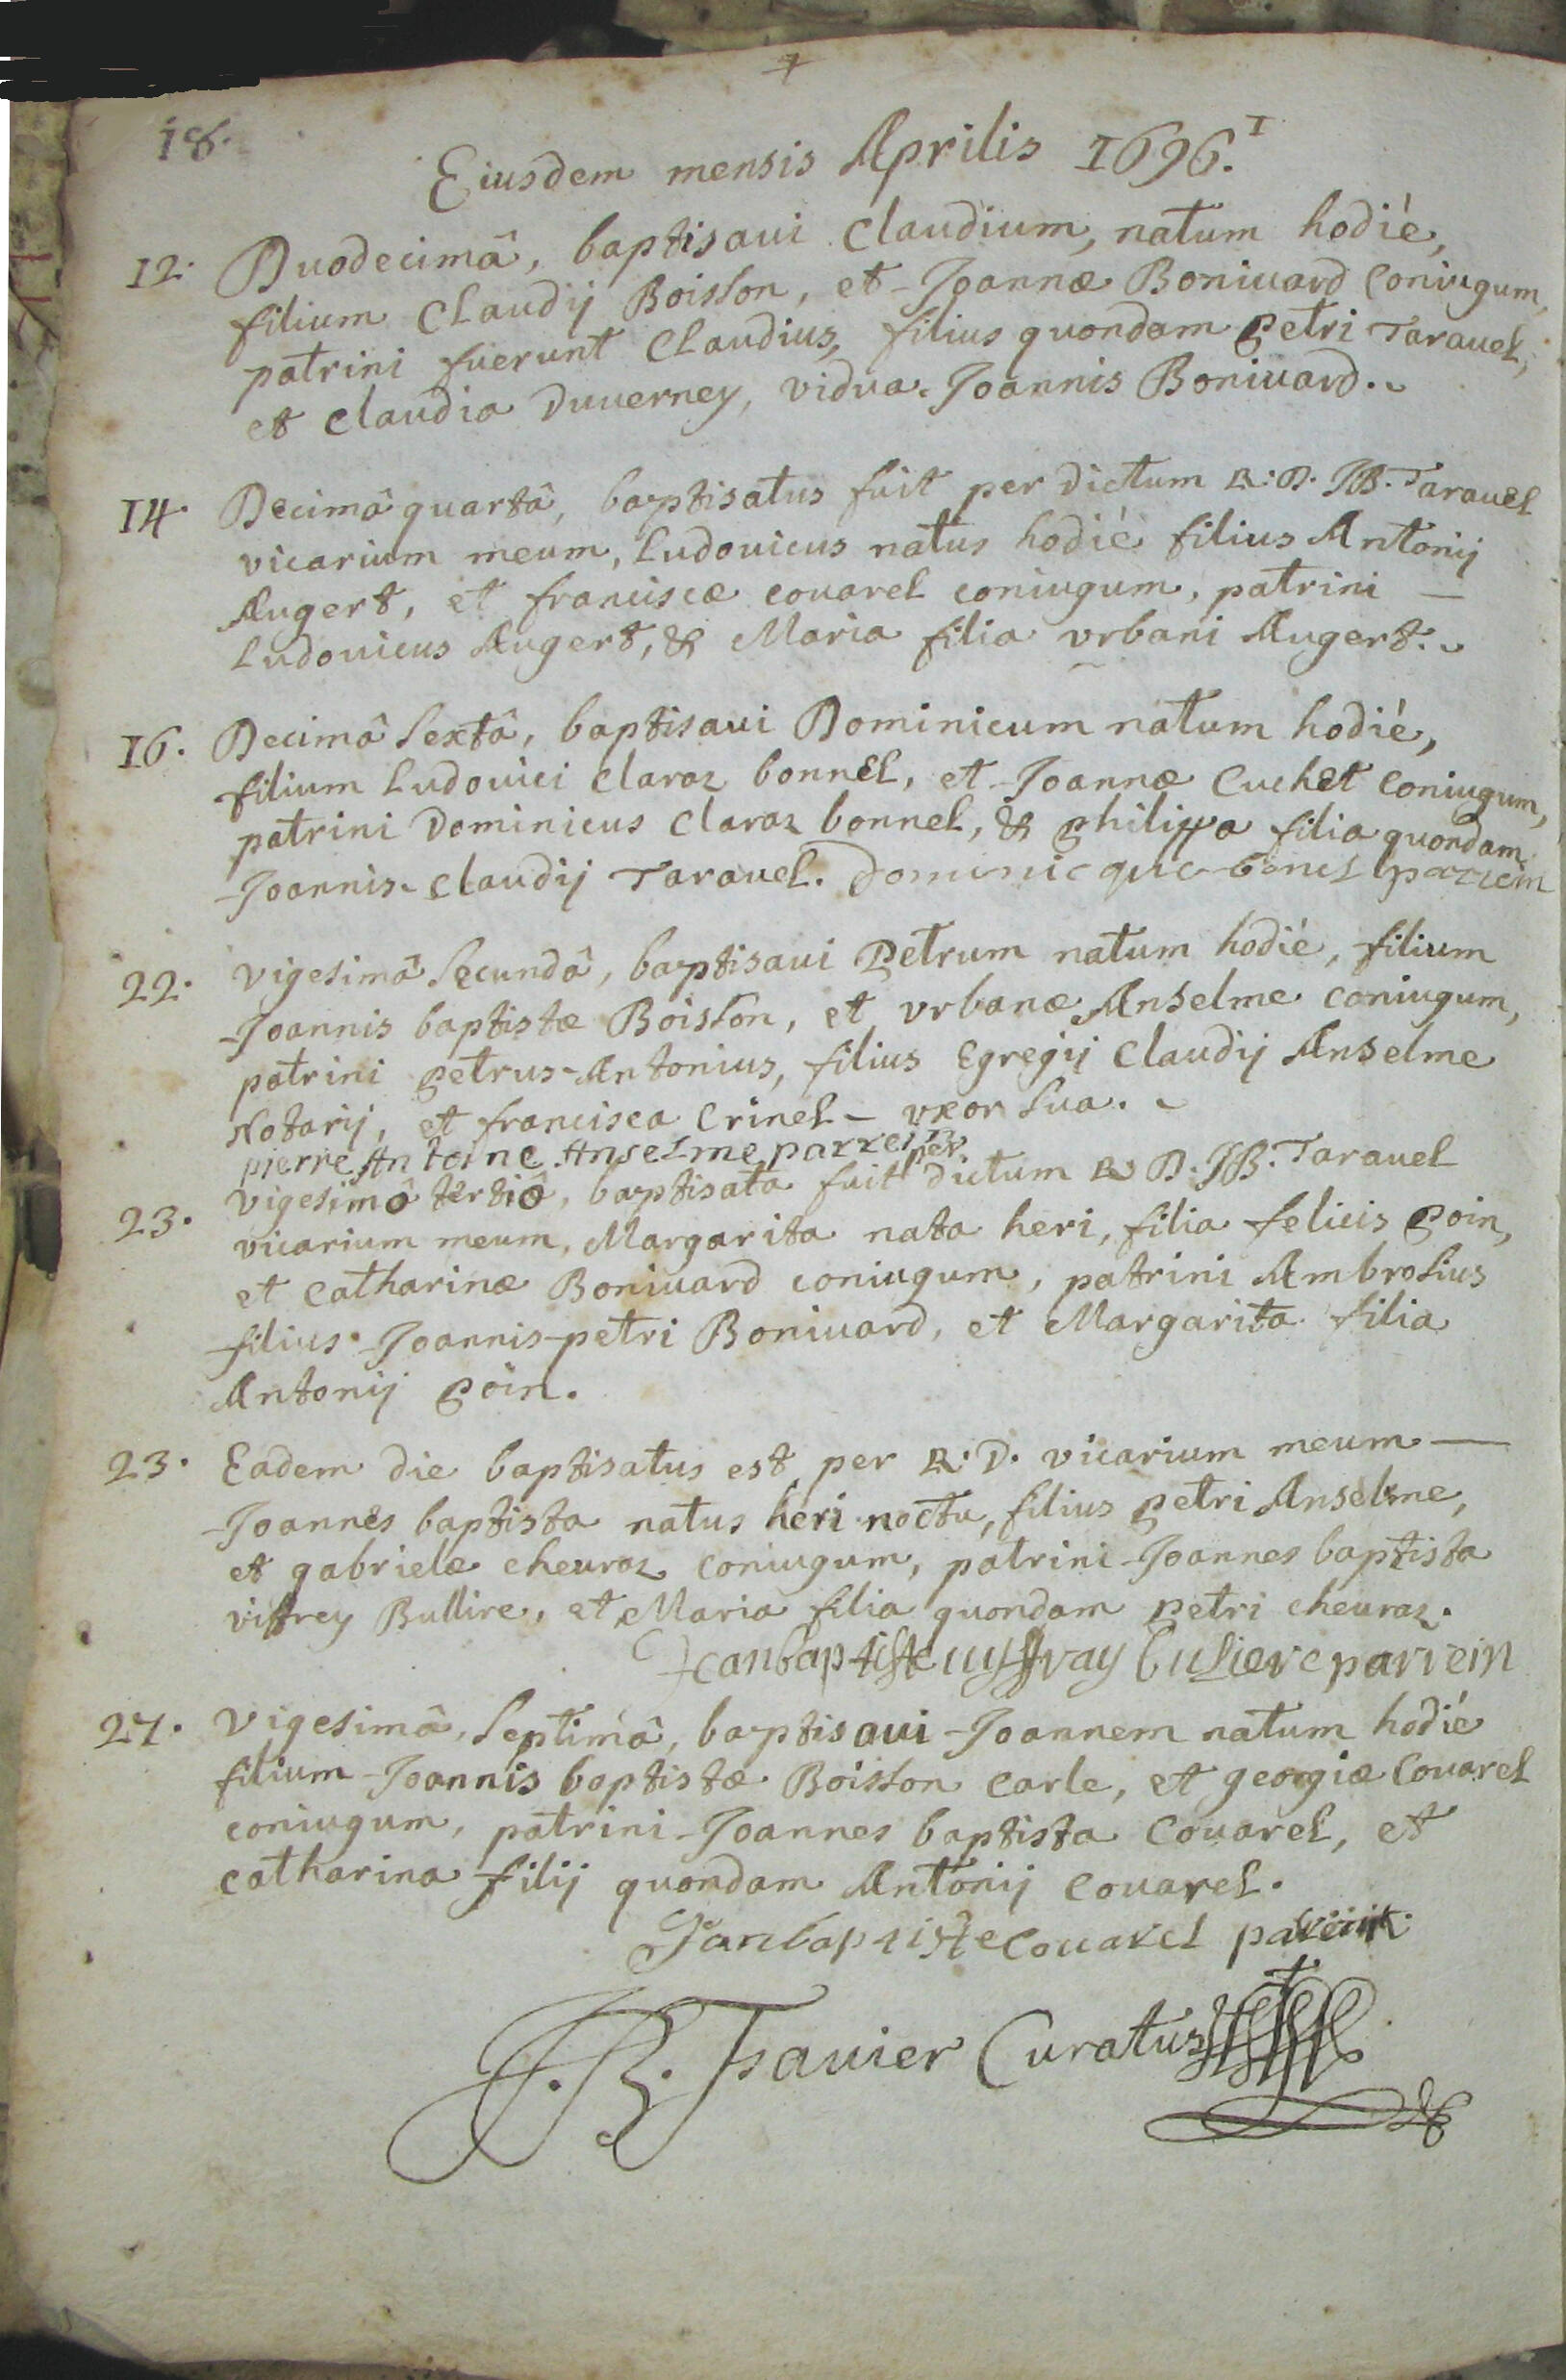 18.
Eiusdem mensis Aprilis 1696.
12. Duodecimâ, baptisaui Claudium, natum hodié,
filium Claudij Boisson, et Joannæ Boniuard coniugum,
patrini fuerunt Claudius, filius quondam petri Tarauel,
et Claudia Duuerney, vidua Joannis Boniuard.
14. Decimâ quartâ, baptisatus fuit per dictum R. D. JB. Tarauel
vicarium meum, Ludouicus natus hodié filius Antonij
Augert, et franciscæ couarel coniugum, patrini —
Ludouicus Augert, & Maria filia vrbani Augert.
16. Decimâ sextâ, baptisaui Dominicum natum hodié,
filium Ludouici claraz bonnel, et Joannæ Cuchet coniugum,
patrini Dominicus claraz bonnel, & philippa filia quondam
Joannis-claudij Tarauel. Dominicque bonel parrein
22. vigesimâ secundâ, baptisaui petrum natum hodié, filium
Joannis baptistæ Boisson, et vrbanæ Anselme coniugum,
patrini petrus-Antonius, filius Egregij Claudij Anselme
Notarij, et francisca Crinel - vxor sua.
pierre Antoine Anselme parrein
23. vigesimâ tertiâ, baptisata fuit per dictum R. D. JB. Tarauel
vicarium meum, Margarita nata heri, filia felicis poin,
et catharinæ Boniuard coniugum, patrini Ambrosius
filius Joannis-petri Boniuard, et Margarita filia
Antonij poin.
23. Eadem die baptisatus est per R. D. vicarium meum —
Joannes baptista natus heri noctu, filius petri Anselme,
et gabrielæ cheuraz coniugum, patrini Joannes baptista
viffrey Bullire, et Maria filia quondam petri cheuraz.
Jean baptiste uyffray buliere parrein
27. vigesimâ septimâ, baptisaui Joannem natum hodié
filium Joannis baptistæ Boisson carle, et georgiæ Couarel
coniugum, patrini Joannes baptista Couarel, et
catharina filij quondam Antonij couarel.
Janbaptiste Couarel
J. B. Curatus